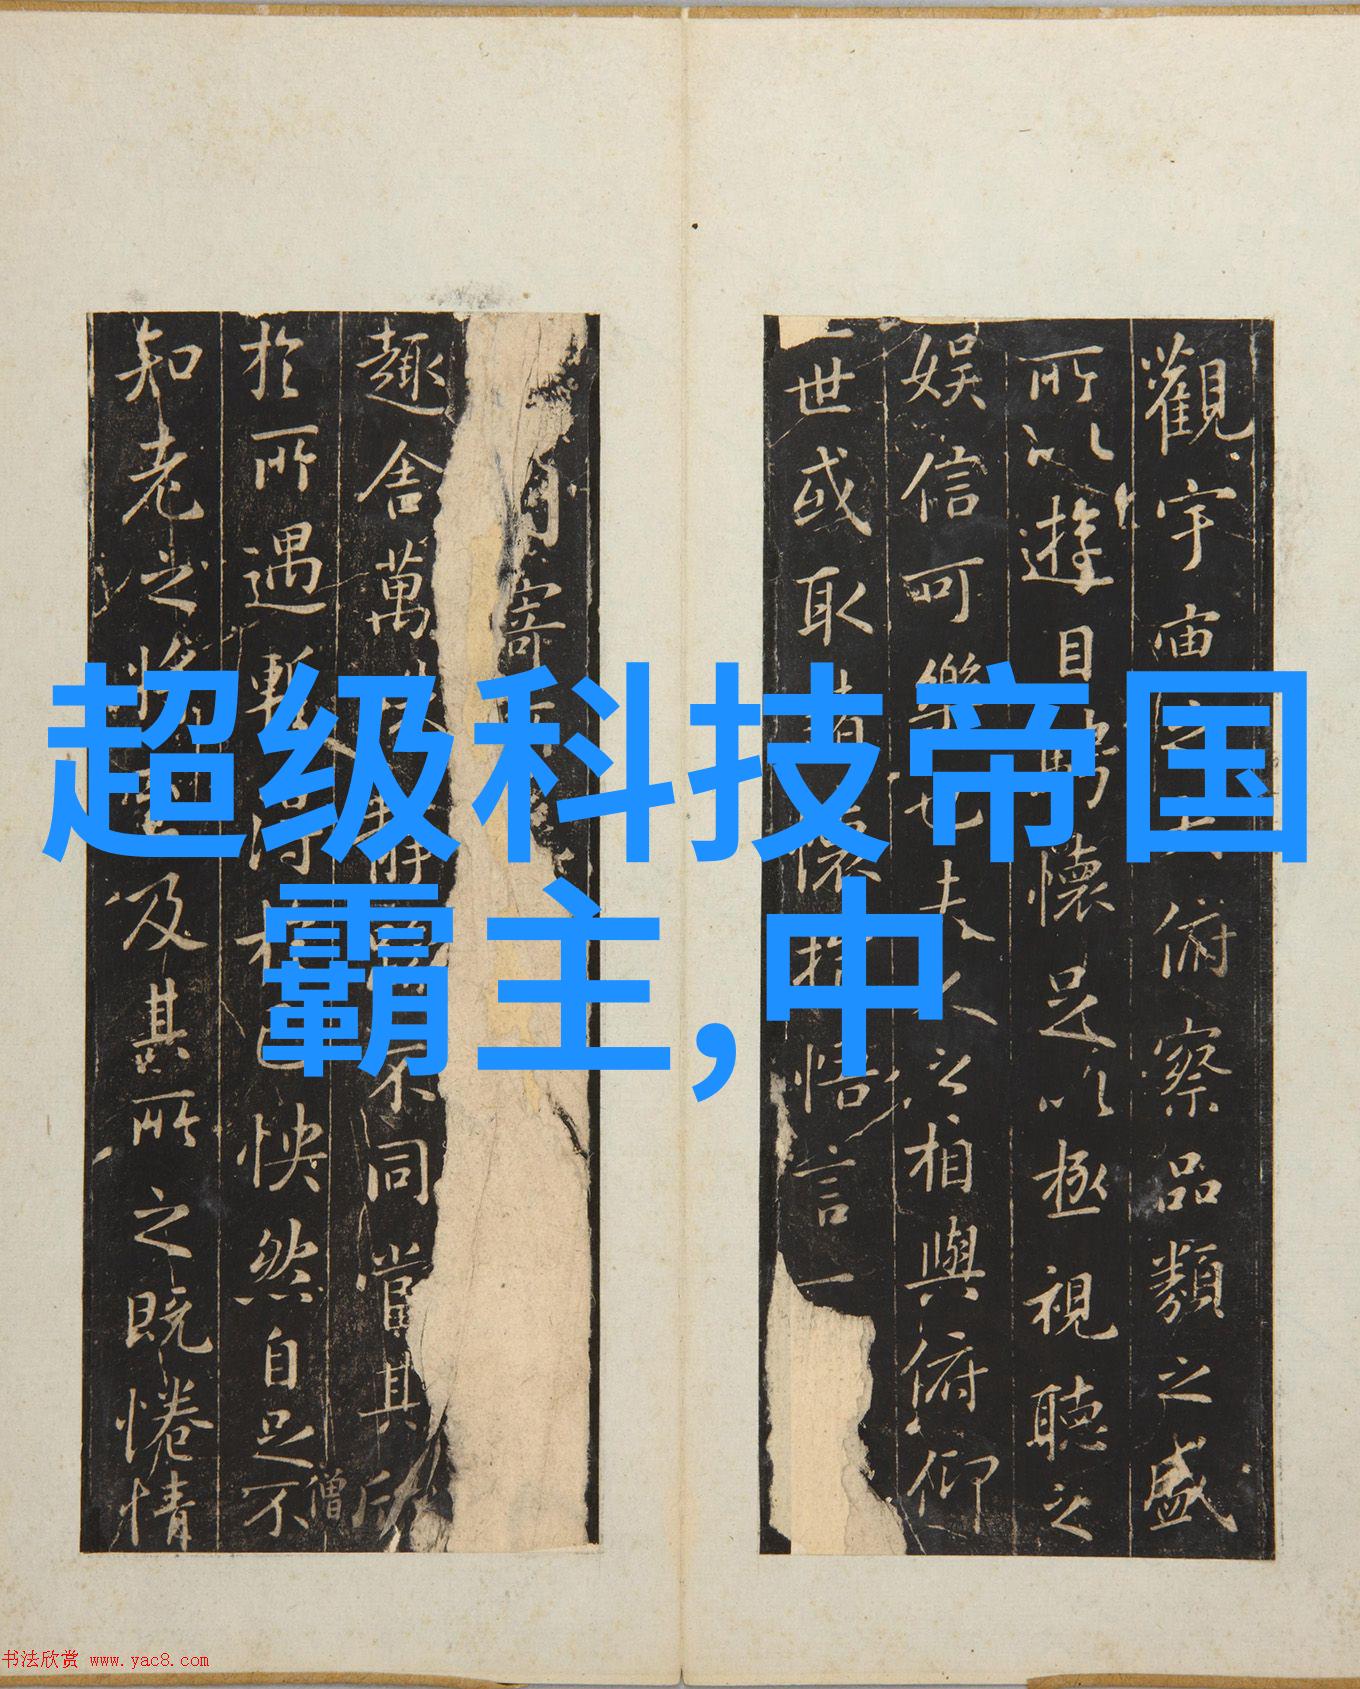 超级科技帝国
霸主,中
觀宇宙之大俯察品類之盛
所以遊目騁懷足以極視聽之
娛信可樂也夫人之相與俯仰
一世或取諸懷抱悟言一
寄
趣舍萬殊靜躁不同當其欣
僧
於所遇暫得於己怏然自足不
知老之將至及其所之既惓情
书法欣赏 www.yac8.com